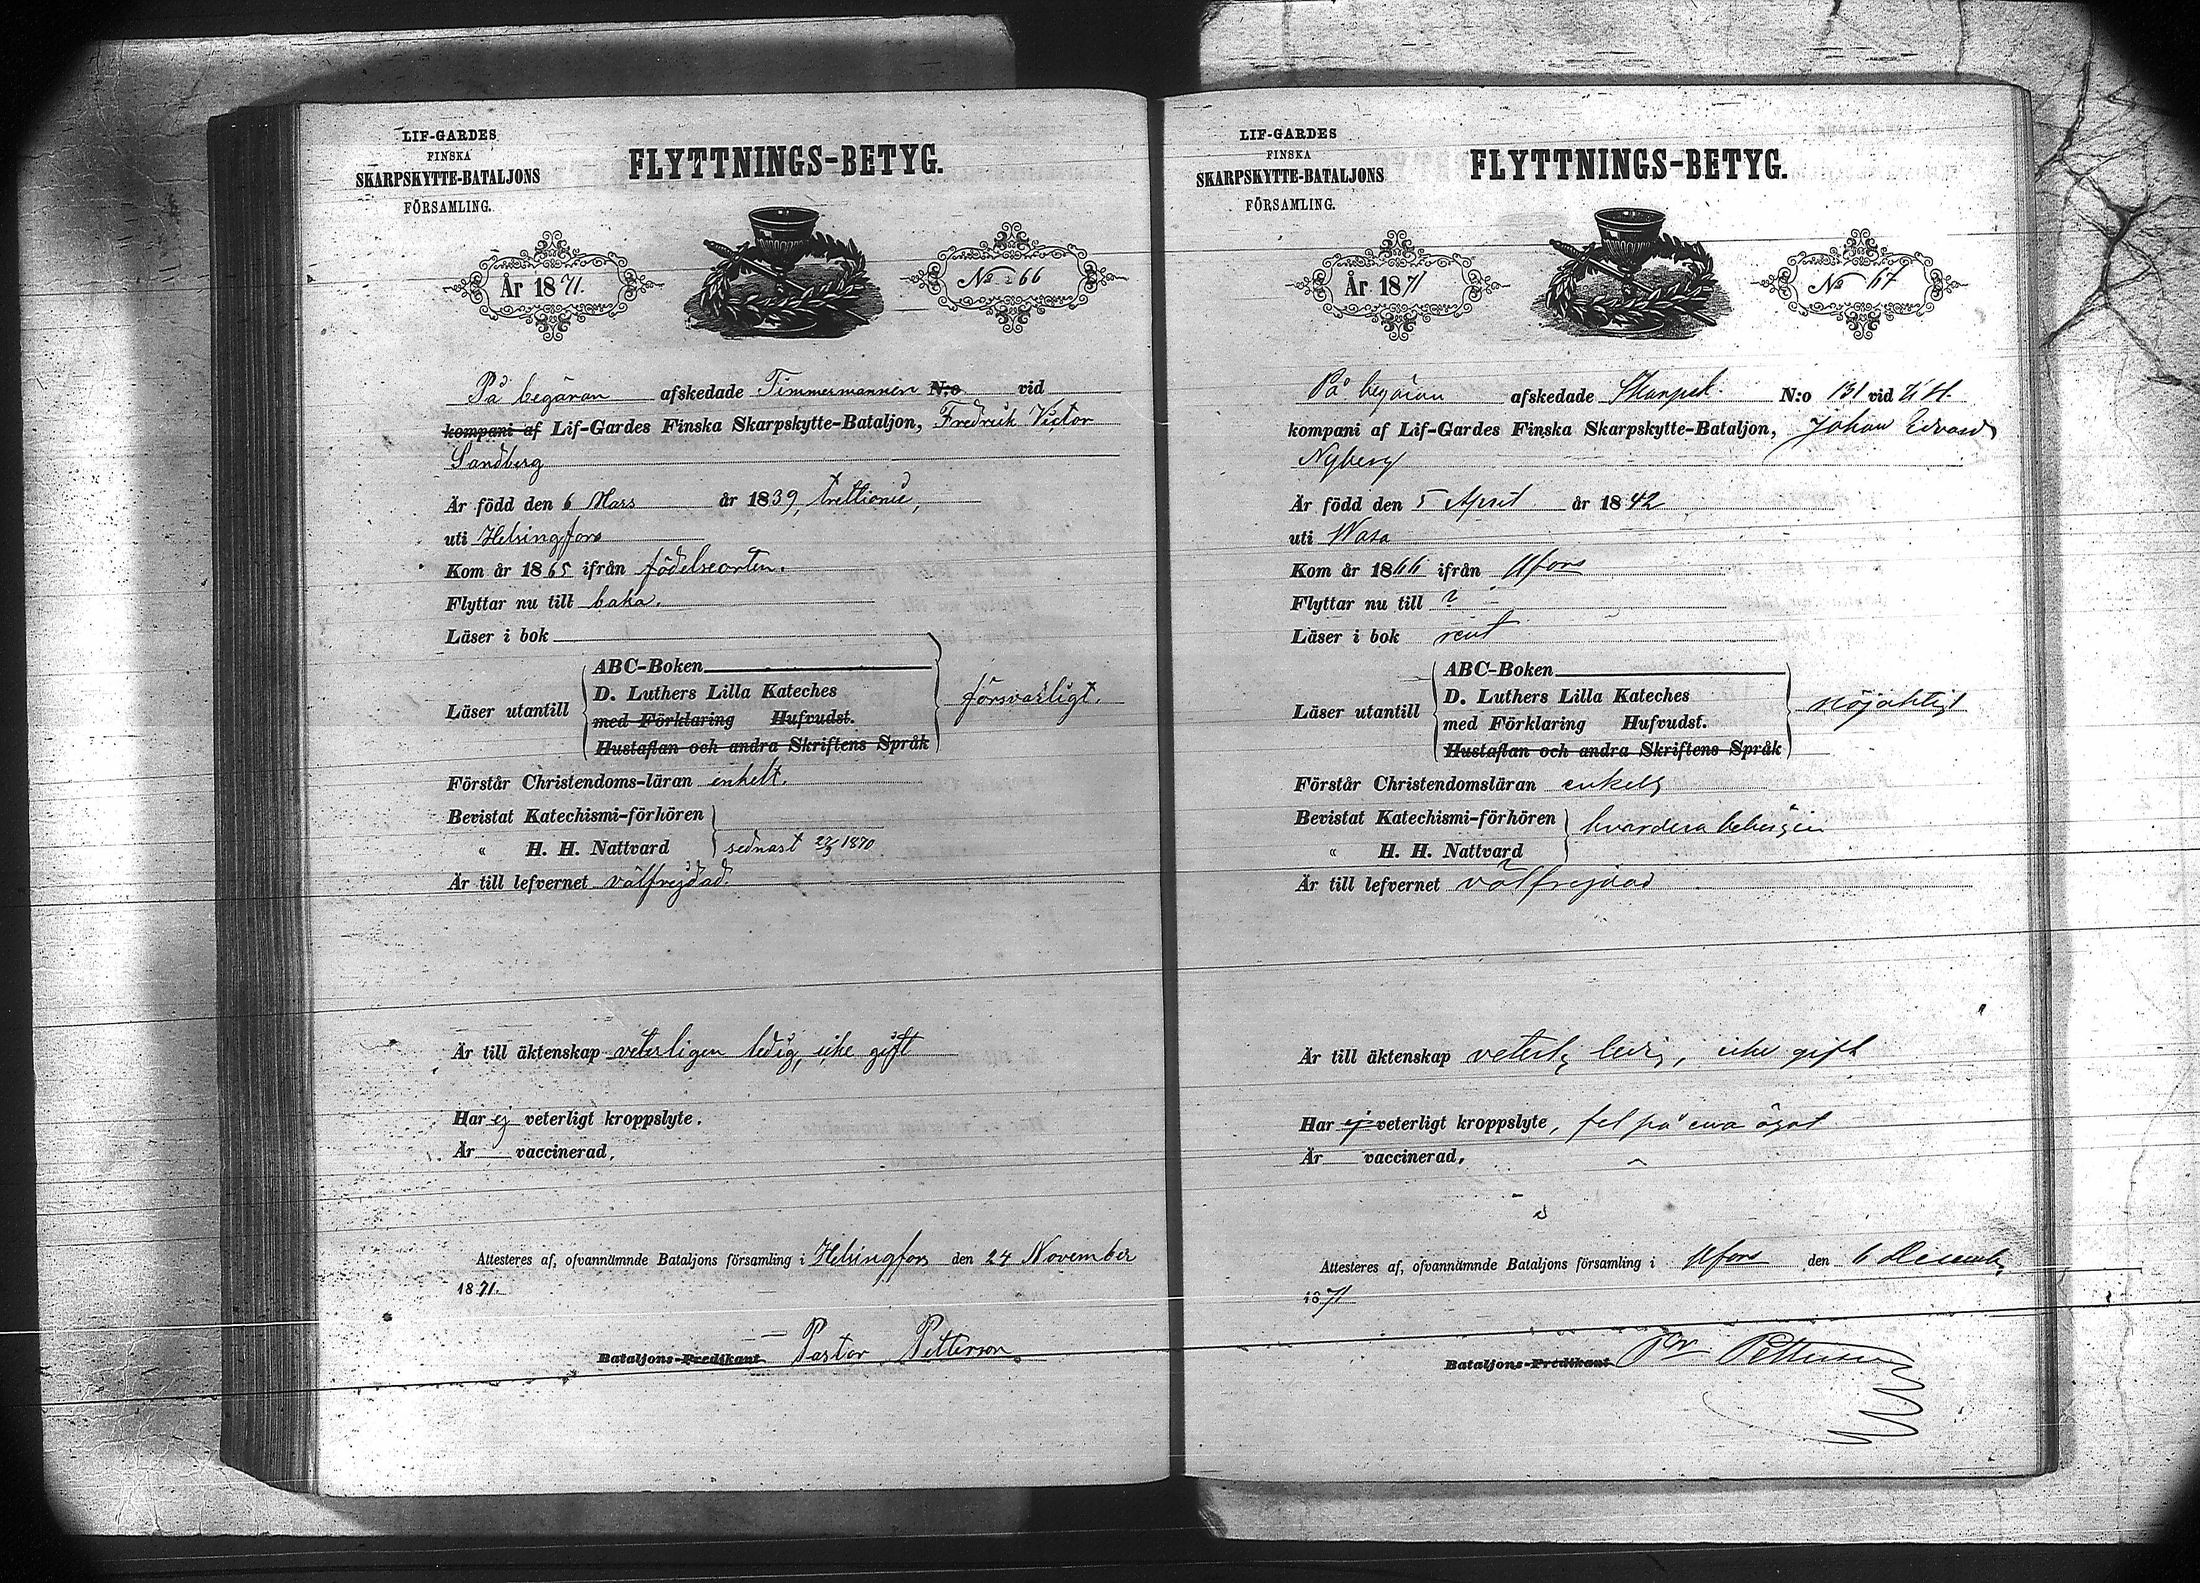 LIF-GARDES
FINSKA
SKARPSKYTTE-BATALJONS
FÖRSAMLING.
FLYTTNINGS-BETYG.
År 1871.
No 66
På begäran afskedade Timmermannen N:o vid
kompani af Lif-Gardes Finska Skarpskytte-Bataljon, Fredrik Victor
Sandberg
Är född den 6 Mars år 1839, trettionie,
uti Helsingfors
Kom år 1865 ifrån födelseorten.
Flyttar nu till baka.
Läser i bok
Läser utantill
ABC-Boken
D. Luthers Lilla Kateches
med Förklaring Hufvudst.
Hustaflan och andra Skriftens Språk
försvarligt.
Förstår Christendoms-läran enkelt.
Bevistat Katechismi-förhören
" H. H. Nattvard sednast 1870
Är till lefvernet välfrejdad.
Är till äktenskap veterligen ledig, icke gift
Har ej veterligt kroppslyte.
Är vaccinerad,
Attesteres af, ofvannämnde Bataljons församling i Helsingfors den 24 November
1871.
Bataljons-Predikant Pastor Petterson.
LIF-GARDES
FINSKA
SKARPSKYTTE-BATALJONS
FÖRSAMLING.
FLYTTNINGS-BETYG.
År 1871
No 67
På begäran afskedade Skarpsk. N:o 131 vid
kompani af Lif-Gardes Finska Skarpskytte-Bataljon, Johan Edvard
Nyberg
Är född den 5 April år 1842
uti Wasa
Kom år 1866 ifrån Hfors
Flyttar nu till ?
Läser i bok rent
Läser utantill
ABC-Boken
D. Luthers Lilla Kateches
med Förklaring Hufvudst.
Hustaflan och andra Skriftens Språk
nöjaktigt
Förstår Christendomsläran enkelt
Bevistat Katechismi-förhören
" H. H. Nattvard
hvardera behörigen
Är till lefvernet välfrejdad
Är till äktenskap veterl. ledig, icke gift
Har ej veterligt kroppslyte, fel på ena ögat
Är vaccinerad,
Attesteres af, ofvannämnde Bataljons församling i Hfors den 6 Decemb.
1871
Bataljons-Predikant Petterson